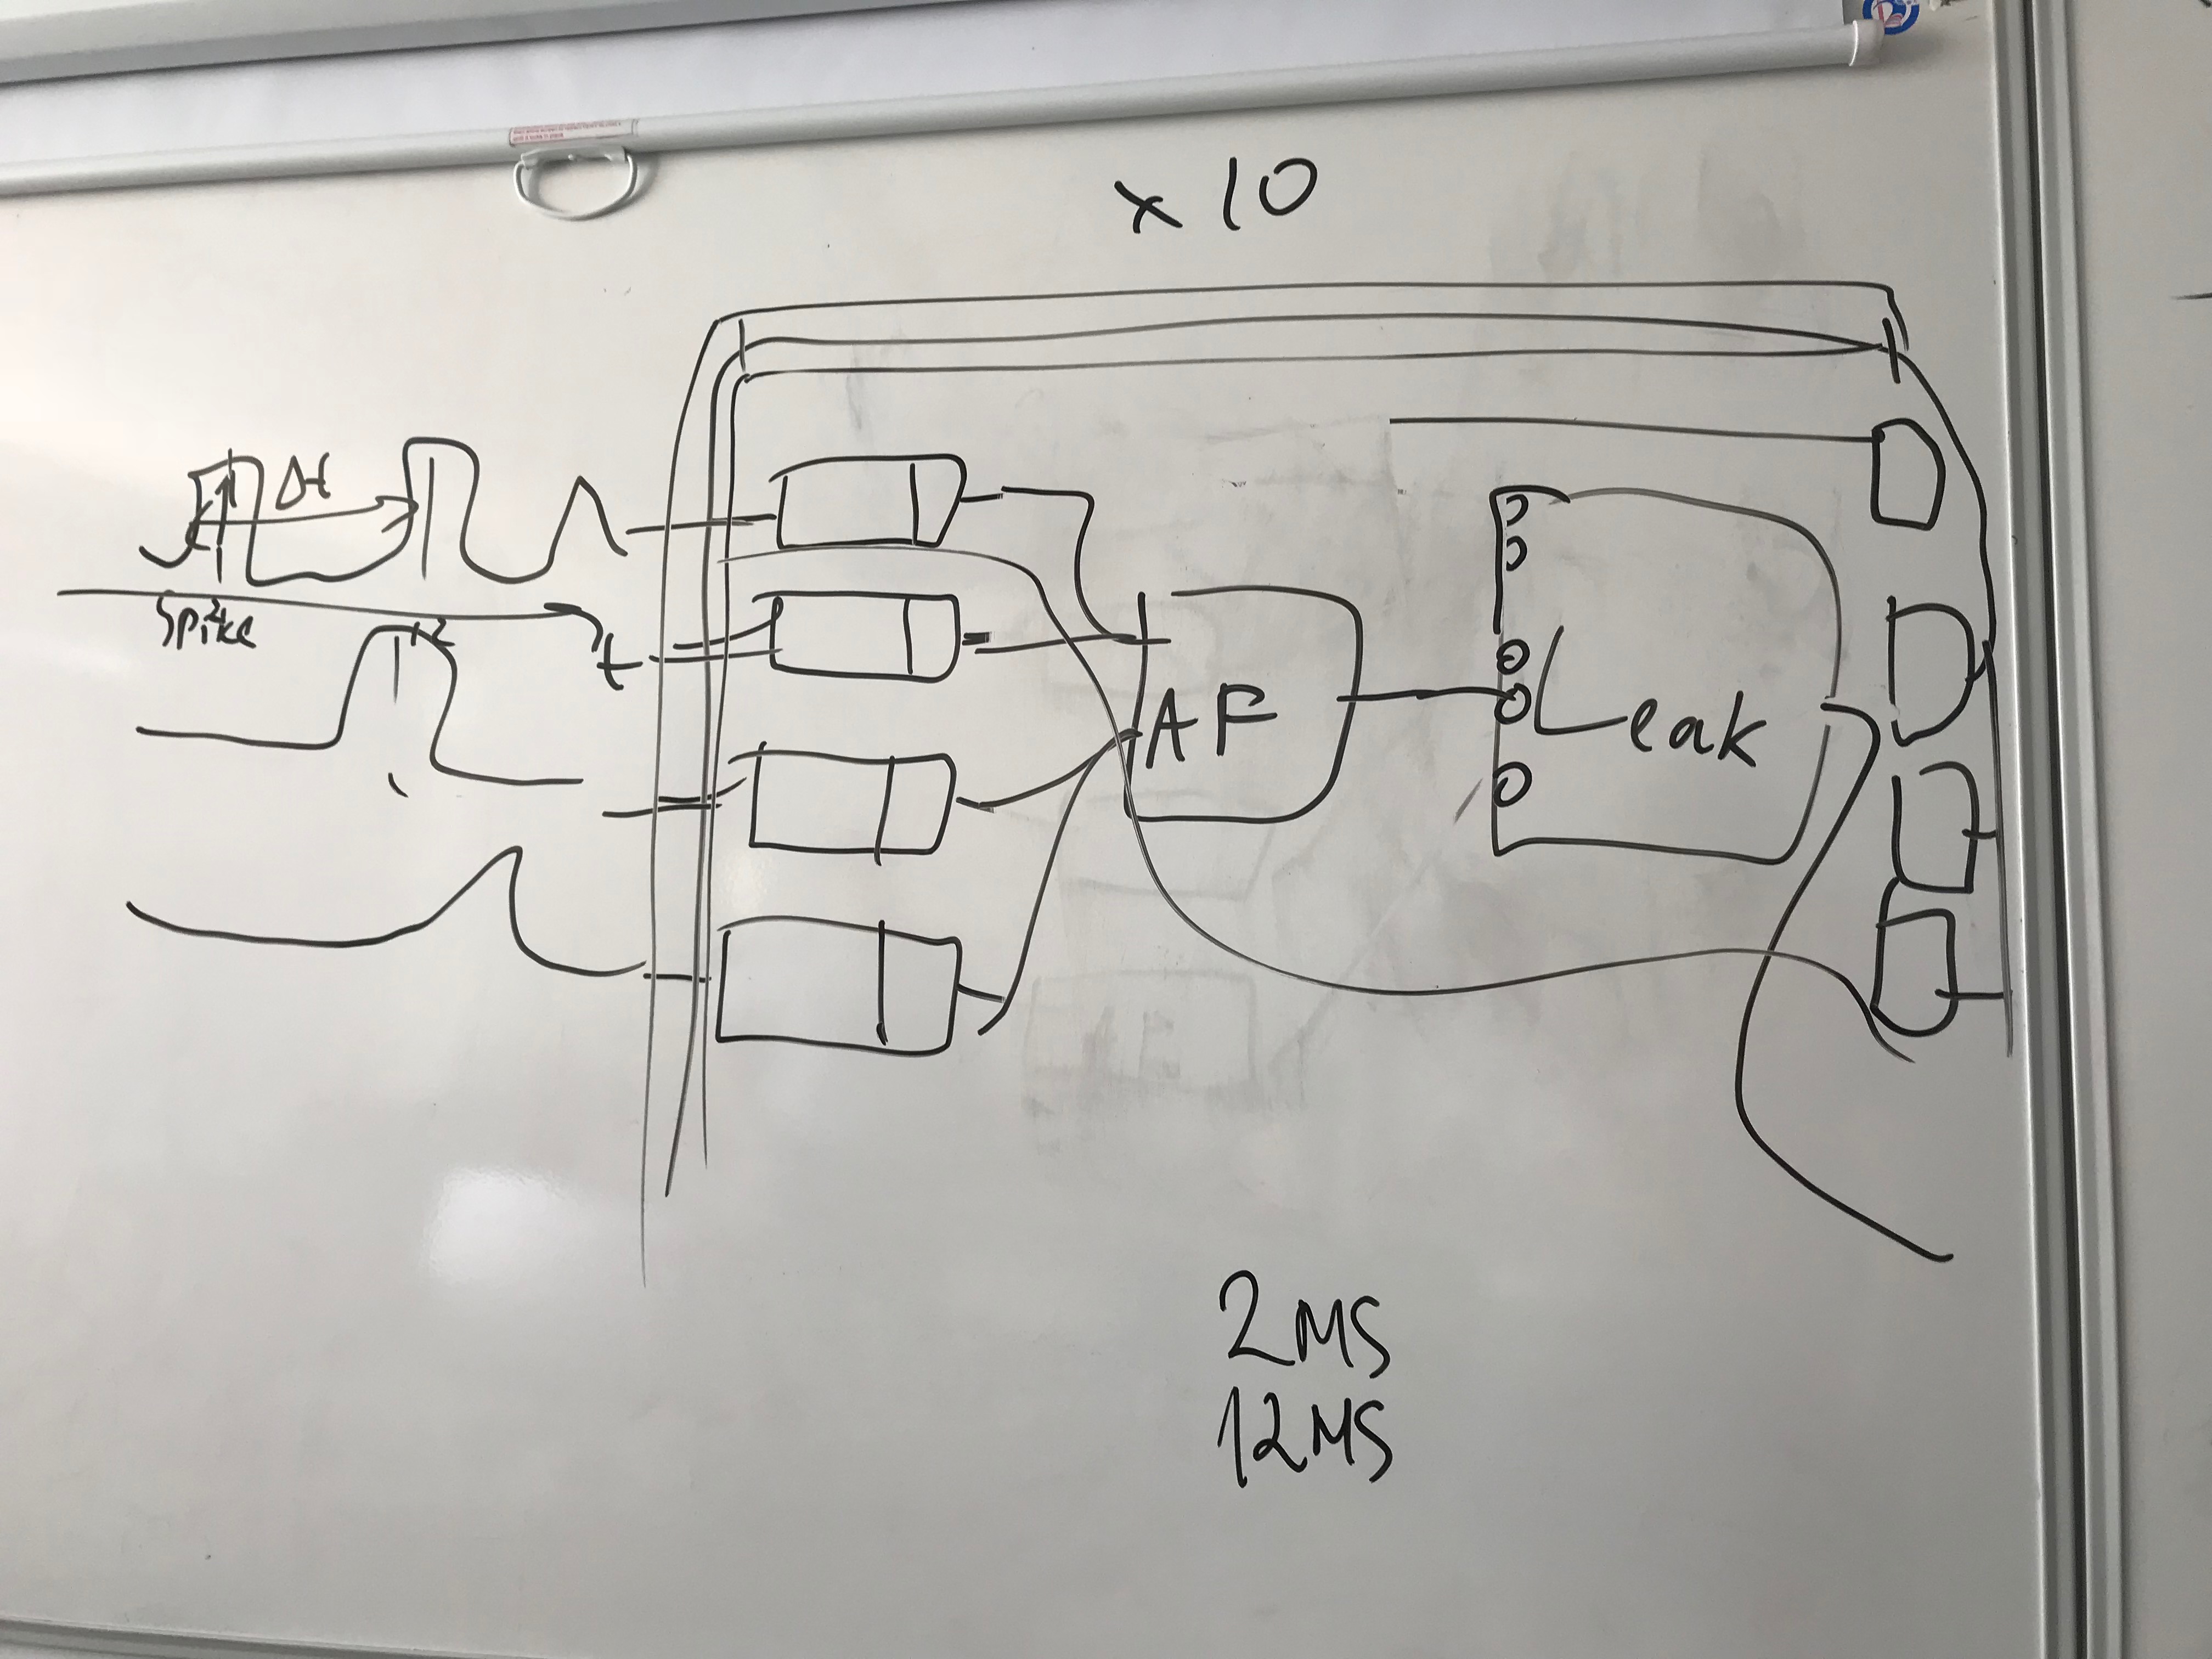 x 10
Δt
Spike
t
AF
Leak
2MS
12MS